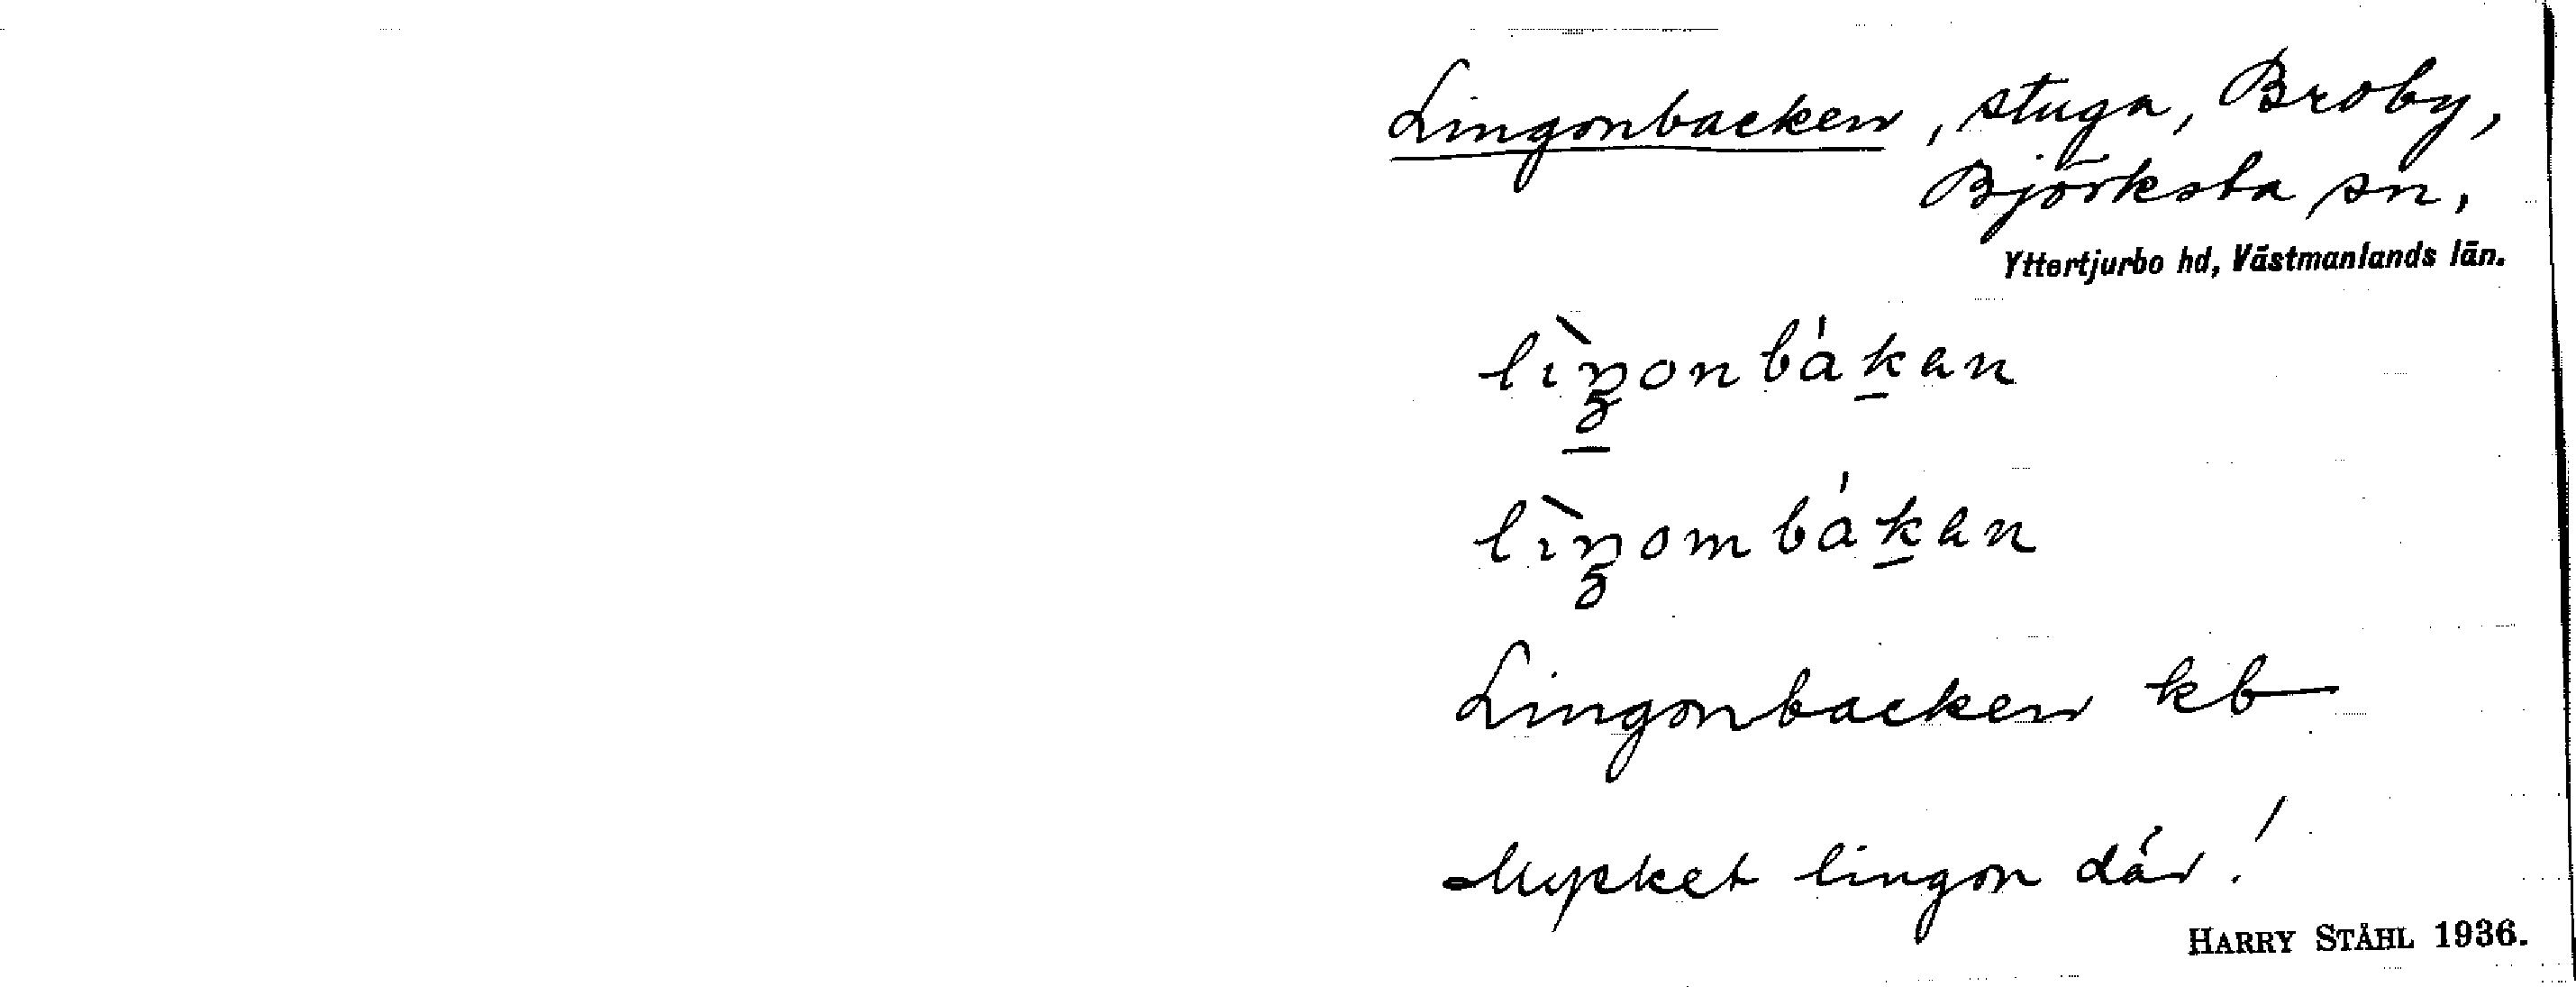 Lingonbacken, stuga, Broby,
Björksta sn,
Yttertjurbo hd, Västmanlands län.
lìŋonbákan
lìŋombákan
Lingonbacken kb
Mycket lingon där!
HARRY STÅHL 1936.